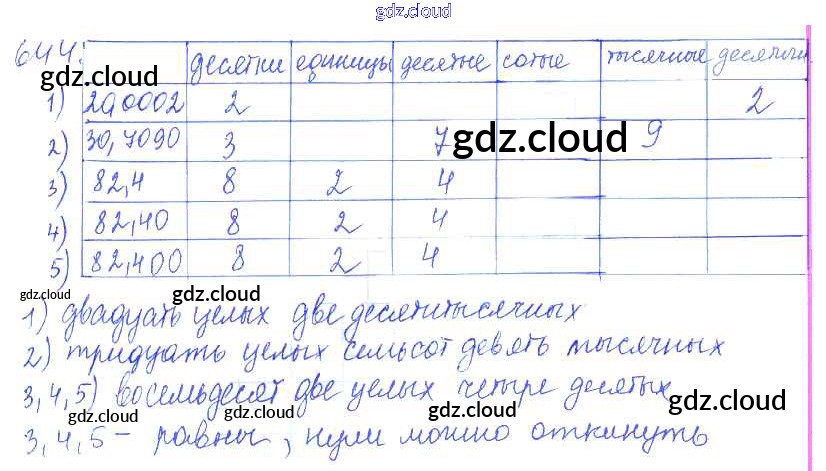 gdz.cloud
644. десятки единицы десятые сотые тысячные десятичн
gdz.cloud
1) 20,0002 2 2
gdz.cloud
2) 30,7090 3 7 9
3) 82,4 8 2 4
4) 82,40 8 2 4
5) 82,400 8 2 4
gdz.cloud gdz.cloud
1) двадцать целых две десятитысячных
gdz.cloud
2) тридцать целых семьсот девять тысячных
3,4,5) восемьдесят две целых четыре десятых
gdz.cloud gdz.cloud gdz.cloud gdz.cloud
3,4,5 - равны, нули можно откинуть